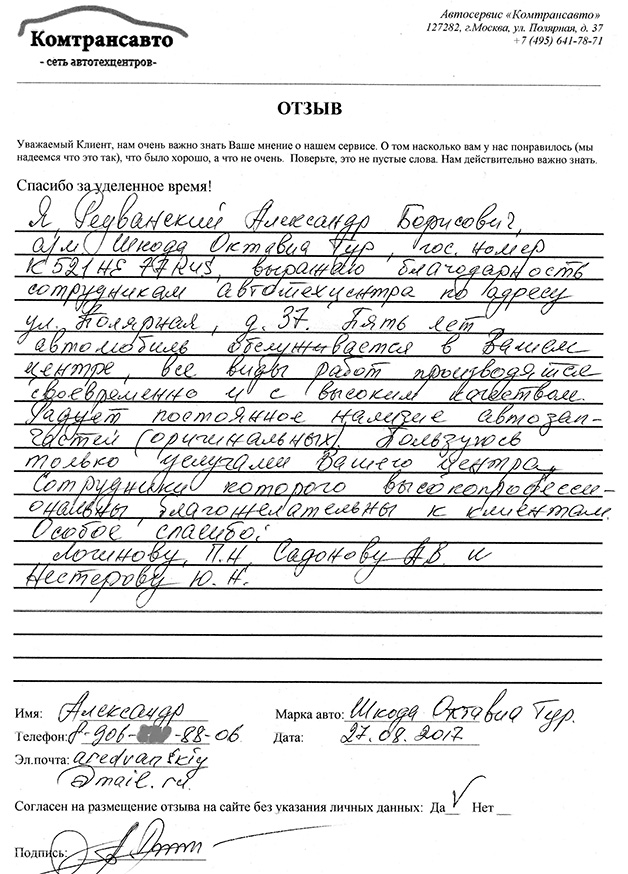 Комтрансавто
- сеть автотехцентров-
Автосервис «Комтрансавто»
127282, г.Москва, ул. Полярная, д. 37
+7 (495) 641-78-71
ОТЗЫВ
Уважаемый Клиент, нам очень важно знать Ваше мнение о нашем сервисе. О том насколько вам у нас понравилось (мы
надеемся что это так), что было хорошо, а что не очень. Поверьте, это не пустые слова. Нам действительно важно знать.
Спасибо за уделенное время!
Я, Редванский Александр Борисович,
а/м Шкода Октавиа Тур, гос. номер
К521НЕ 77RUS, выражаю благодарность
сотрудникам автотехцентра по адресу
ул. Полярная, д. 37. Пять лет
автомобиль обслуживается в Вашем
центре, все виды работ производятся
своевременно и с высоким качеством.
Радует постоянное наличие автозап-
частей (оригинальных). Пользуюсь
только услугами Вашего центра,
Сотрудники которого высокопрофесси-
ональны, благожелательны к клиентам.
Особое спасибо:
Логинову П.Н, Садонову А.В. и
Нестерову Ю.Н.
Имя: Александр
Марка авто: Шкода Октавиа Тур.
Телефон: 8-906- -88-06
Дата: 27.08.2017
Эл.почта: aredvanskiy
@mail.ru
Согласен на размещение отзыва на сайте без указания личных данных: Да V Нет
Подпись: